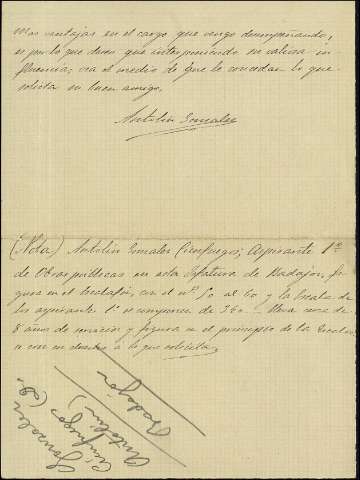 mas ventajas en el cargo que vengo desempeñando,
es por lo que deseo que interponiendo su valiosa in-
fluencia, vea el medio de que le concedan lo que
solicita su buen amigo.
Antolin Gonzalez
(Nota) Antolin Gonzalez Cienfuegos; Aspirante 1º
de Obras públicas en esta Jefatura de Badajoz, fi-
gura en el escalafón, con el nº 50 al 60 y la escala de
los aspirante 1º se compone de 360. Lleva cerca de
8 años de servicio y figura en el principio de la Escala,
con en
a lo que solicita.
Gonzalez
Cienfuegos
Antolin)
Badajoz